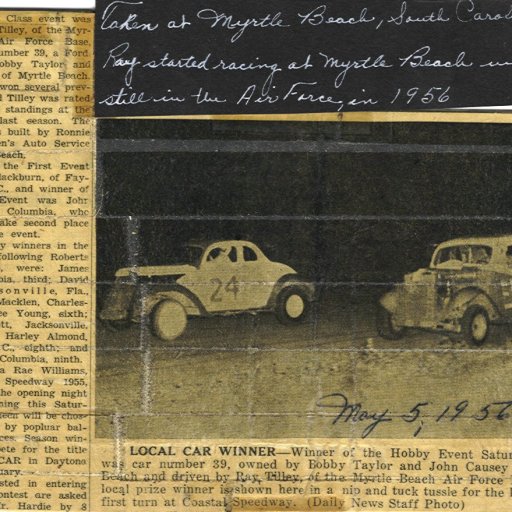 Taken at Myrtle Beach, South Carol
Ray started racing at Myrtle Beach
still in the Air Force, in 1956
Class event was
Tilley, of the Myr-
Air Force Base,
umber 39, a Ford
obby Taylor and
of Myrtle Beach.
won several prev-
d Tilley was rated
standings at the
last season. The
s built by Ronnie
en's Auto Service
Beach.
the First Event
lackburn, of Fay-
C., and winner of
Event was John
Columbia, who
ake second place
e event.
y winners in the
following Roberts
, were: James
bia, third; David
sonville, Fla.,
Macklen, Charles-
ee Young, sixth;
tt, Jacksonville,
Harley Almond,
C., eighth; and
Columbia, ninth.
a Rae Williams,
Speedway 1955,
the opening night
ning this Satur-
ueen will be chos-
by popluar bal-
ces. Season win-
pete for the title
CAR in Daytona
uary.
sted in entering
ontest are asked
r. Hardie by 8
24
May 5, 1956
LOCAL CAR WINNER—Winner of the Hobby Event Satur
was car number 39, owned by Bobby Taylor and John Causey
Beach and driven by Ray Tilley, of the Myrtle Beach Air Force
local prize winner is shown here in a nip and tuck tussle for the l
first turn at Coastal Speedway. (Daily News Staff Photo)